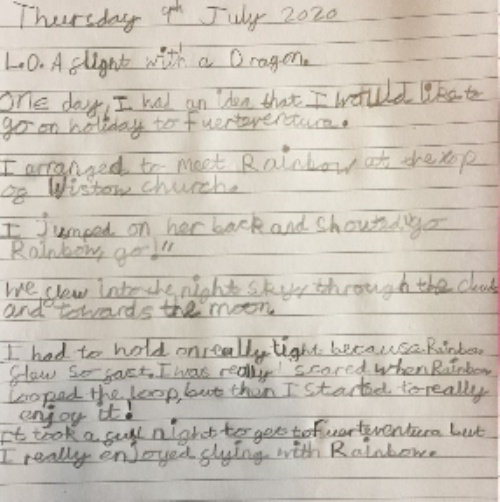 Thursday 9th July 2020
L.O. A flight with a Dragon.
One day, I had an idea that I would like to
go on holiday to Fuerteventura.
I arranged to meet Rainbow at the top
of Wiston church.
I jumped on her back and shouted "go
Rainbow, go!"
We flew into the night sky, through the clouds
and towards the moon.
I had to hold on really tight because Rainbow
flew so fast. I was really scared when Rainbow
looped the loop, but then I started to really
enjoy it!
It took a full night to get to Fuerteventura but
I really enjoyed flying with Rainbow.